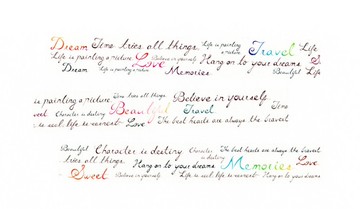 Dream Time tries all things. Life is painting a picture Travel Life
Life is painting a picture. Love Believe in yourself Hang on to your dreams S
Dream Life is painting a picture Memories Beautiful Life
is painting a picture. Time tries all things. Believe in yourself.
Sweet Character is destiny Beautiful Travel Time
Life is real, life is earnest Love The best hearts are always the bravest
Beautiful Character is destiny Character is destiny The best hearts are always the bravest
tries all things. Hang on to your dreams Memories Love
Sweet Believe in yourself Life is real, life is earnest Hang on to your dreams